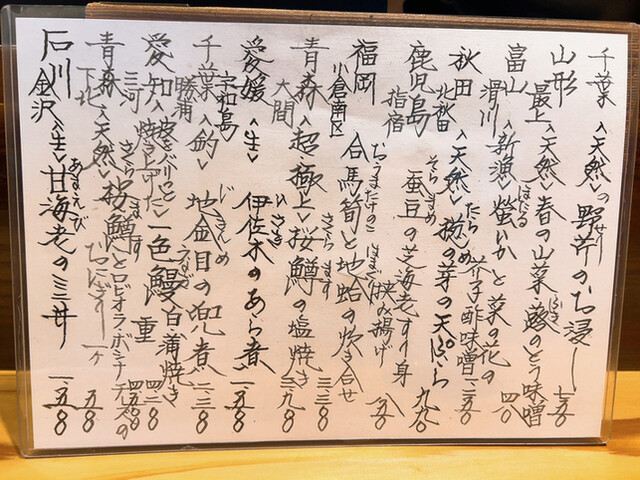 千葉〈天然〉の野芹のお浸し 七五〇
山形 最上〈天然〉春の山菜・蕗のとう味噌 四八〇
富山 滑川〈新漁〉蛍いかと菜の花の芥子酢味噌 一二五〇
秋田 北秋田〈天然〉楤の芽の天ぷら 九八〇
鹿児島 指宿 蚕豆の芝海老すり身挟み揚げ 八五〇
福岡 小倉南区 合馬筍と地蛤の炊き合せ 一三五〇
青森 大間〈超・極上〉桜鱒の塩焼き 三、九八〇
愛媛 宇和島〈生〉伊佐木のあら煮 一、一五〇
千葉 勝浦〈釣〉地金目の兜煮 二、二三〇
愛知 三河〈皮をパリッと焼き上げた〉一色鰻 白・蒲焼き 四、二五〇 重 四、五五〇
青森 下北〈天然〉桜鱒とロビオラボシナチーズのおにぎり 一ヶ 五五〇
石川 金沢〈生〉甘海老の三丼 一、一五〇